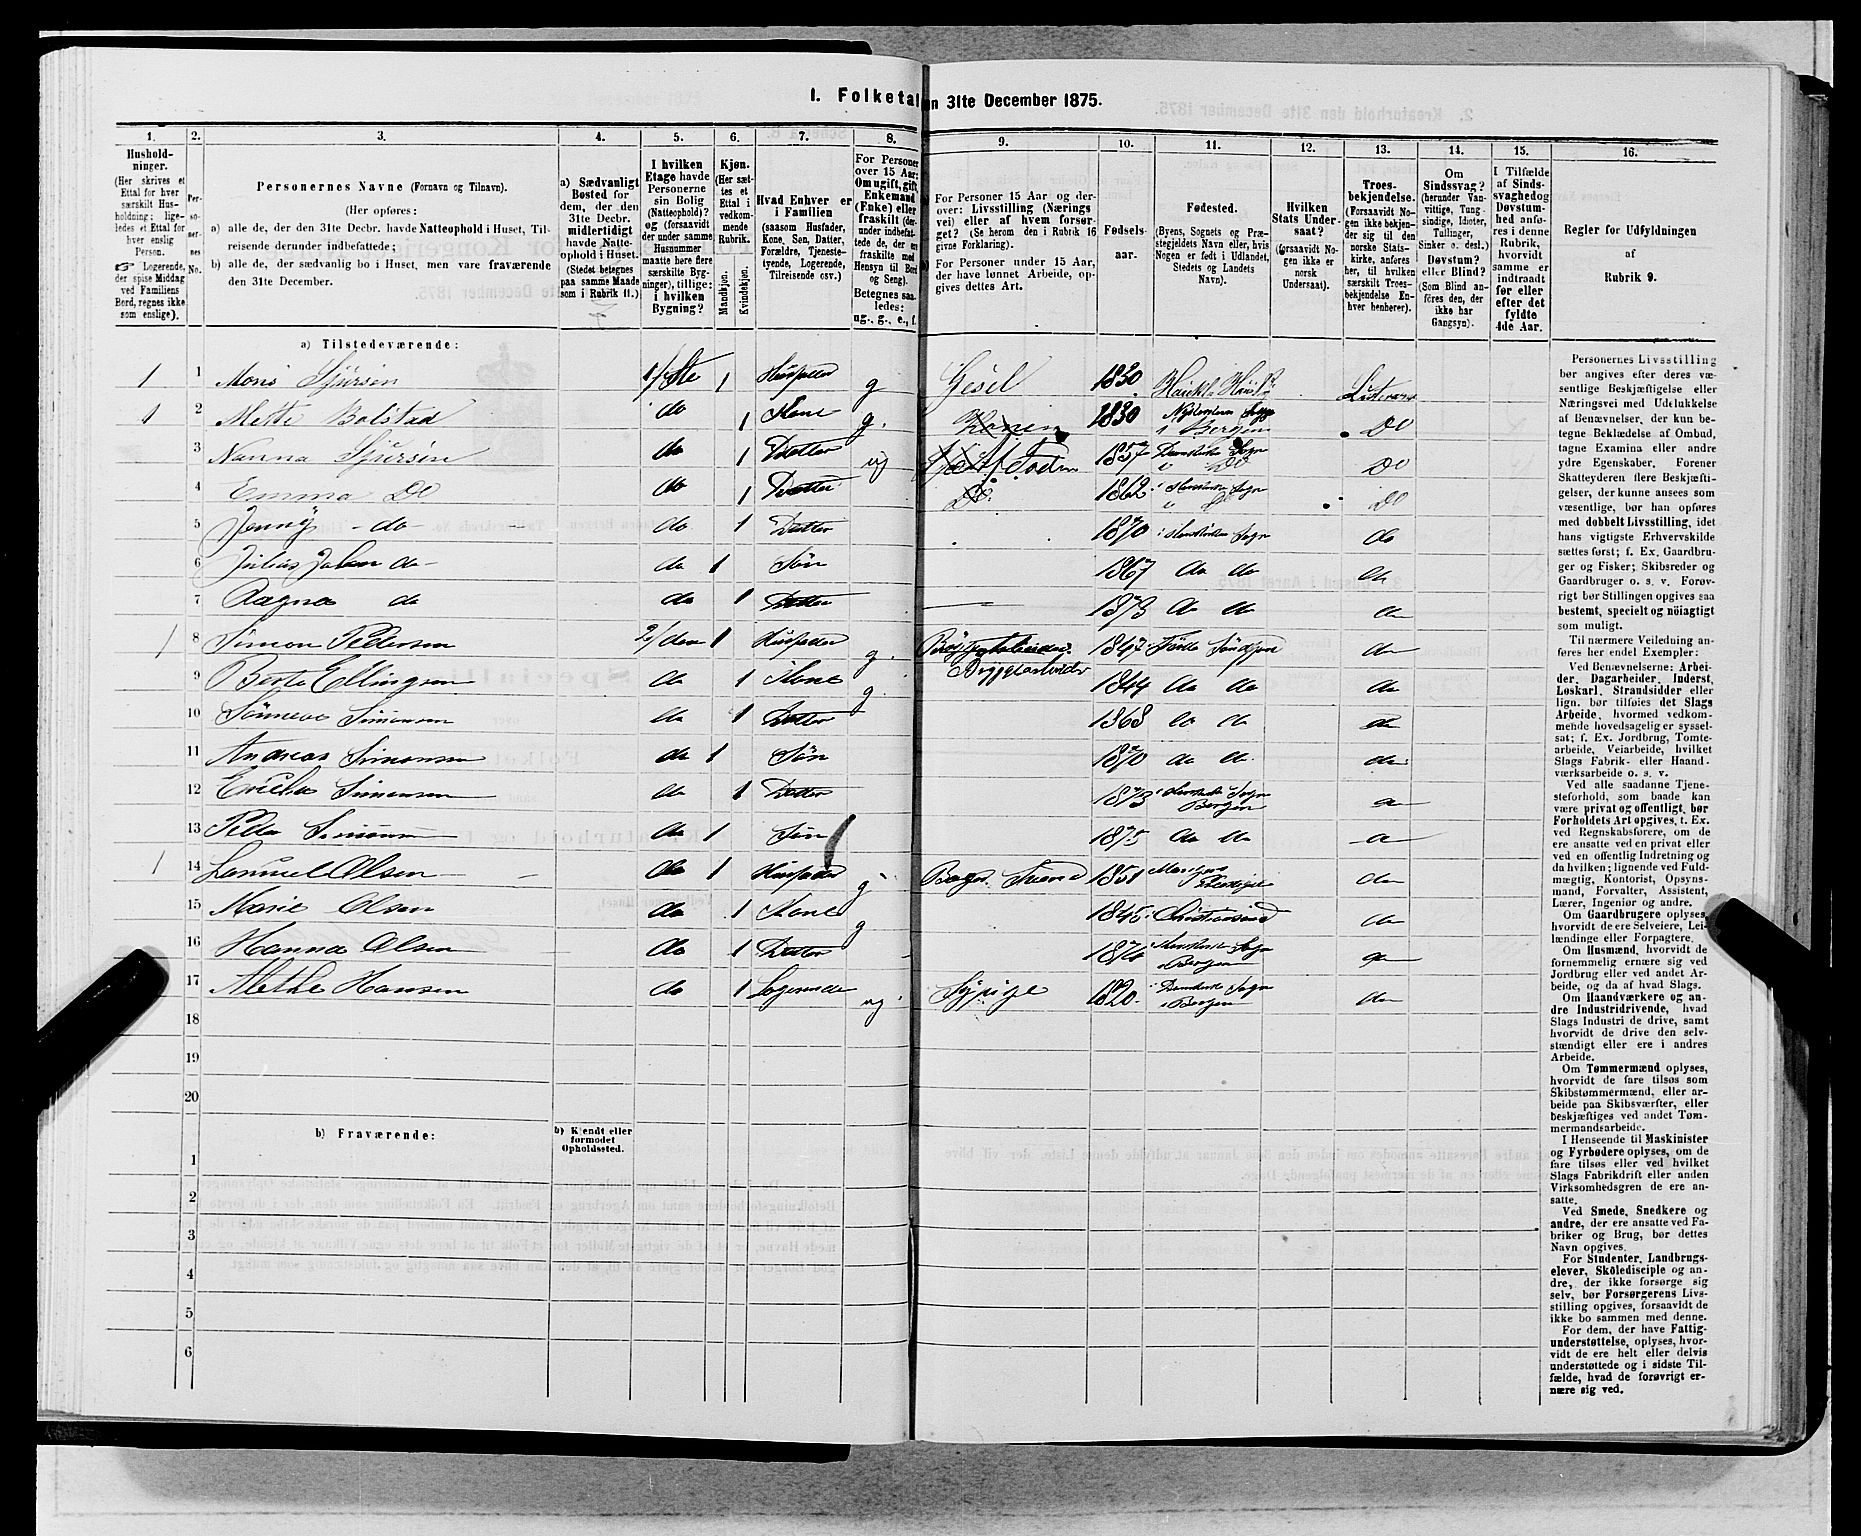 1. Folketal
n 31te December 1875.
1.
2.
3.
4.
5.
6.
7.
8.
9.
10.
11.
12.
13.
14.
15.
16.
Hushold-
ninger.
(Her skrives et
Ettal for hver
særskilt Hus-
holdning; lige-
ledes et Ettal
for hver enslig
Person.
Logerende,
der spise Middag
ved Familiens
Bord, regnes ikke
som enslige).
Per-
so-
ner-
nes
No.
Personernes Navne (Fornavn og Tilnavn).
(Her opføres:
a) alle de, der den 31te Decbr. havde Natteophold i Huset, Til-
reisende derunder indbefattede;
b) alle de, der sædvanlig bo i Huset, men vare fraværende
den 31te December.
a) Sædvanligt
Bosted for
dem, der den
31te Decbr.
midlertidigt
havde Natte-
ophold i Huset.
(Stedet betegnes
paa samme Maade
som i Rubrik 11.)
I hvilken
Etage havde
Personerne
sin Bolig
(Natteophold)?
og (forsaavidt
der under samme
Husnummer
maatte høre flere
særskilte Byg-
ninger), tillige:
i hvilken
Bygning?
Kjøn.
(Her sæt-
tes et
Ettal i
vedkom-
mende
Rubrik.
Mandkjøn.
Kvindekjøn.
Hvad Enhver er
i Familien
(saasom Husfader,
Kone, Søn, Datter,
Forældre, Tjeneste-
tyende, Logerende,
Tilreisende osv.)
For Personer
over 15 Aar:
Om ugift, gift,
Enkemand
(Enke) eller
fraskilt (der-
under indbefat-
tede de, der ere
fraskilte med
Hensyn til Bord
og Seng).
Betegnes saa-
ledes:
ug., g., e., f.
For Personer 15 Aar og der-
over: Livsstilling (Nærings
vei) eller af hvem forsør-
get? (Se herom den i Rubrik 16
givne Forklaring).
For Personer under 15 Aar,
der have lønnet Arbeide, op-
gives dettes Art.
Fødsels-
aar.
Fødested.
(Byens, Sognets og Præ-
stegjeldets Navn eller, hvis
Nogen er født i Udlandet,
Stedets og Landets
Navn).
Hvilken
Stats Under-
saat?
(forsaavidt No-
gen ikke er
norsk
Undersaat).
Troes-
bekjendelse.
(Forsaavidt No-
gen ikke bekjen-
der sig til den
norske Stats-
kirke, anføres
her, til hvilken
særskilt Troes-
bekjendelse En-
hver henhører).
Om
Sindssvag?
(herunder Van-
vittige, Tung-
sindige, Idioter,
Tullinger,
Sinker o. desl.)
Døvstum?
eller Blind?
(Som Blind an-
føres den, der
ikke har
Gangsyn).
I Tilfælde
af Sinds-
svaghed og
Døvstum-
hed anfø-
res i denne
Rubrik,
hvorvidt
samme er
indtraadt
før eller
efter det
fyldte
4de Aar.
Regler for Udfyldningen
af
Rubrik 9.
a) Tilstedeværende:
1 1 Mons Sjursen 1/ste 1 Husfader g 1830
1 2 Mette Bolstad do 1 Kone g. Konen 1830 Bergen Do
3 Nanna Sjursen do 1 Datter ug 1857 Domkirke Sogn Do
4 Emma Do do 1 Datter Do 1862 Sogn Do
5 Jenny -do- do 1 Datter 1870 Sogn do
6 Julius Johan do- do 1 Søn 1867 do do do
7 Ragna do do 1 Datter 1873 do do do
1 8 Simon Pedersen 2/den 1 Husfader g. Bryggearbeider 1847 Førde Søndfjord do
9 Berte Ellingsen do 1 Kone g. 1844 do do do
10 Sønneve Simonsen do 1 Datter 1868 do do do
11 Andreas Simonsen do 1 Søn 1870 do do do
12 Simonsen do 1 Datter 1873 Sogn Bergen do
13 Peder Simonsen do 1 Søn 1875 do do do
1 14 Samuel Olsen do 1 Husfader g Bager Svend 1851 do
15 Marie Olsen do 1 Kone g 1845 Christiansund do
16 Hanna Olsen do 1 Datter Sogn i Bergen do
17 Methe Hansen do 1 Logerende ug. Sypige 1820 Domkirke Sogn i Bergen do
18
19
20
b) Fraværende:
b) Kjendt eller
formodet
Opholdssted.
1
2
3
4
5
6
Personernes Livsstilling
bør angives efter deres væ-
sentlige Beskjæftigelse eller
Næringsvei med Udelukkelse
af Benævnelser, der kun be-
tegne Beklædelse af Ombud,
tagne Examina eller andre
ydre Egenskaber. Forener
Skatteyderen flere Beskjæfti-
gelser, der kunne ansees som
væsentlige, bør han opføres
med dobbelt Livsstilling, idet
hans vigtigste Erhvervskilde
sættes først; f. Ex. Gaardbru-
ger og Fisker; Skibsreder og
Gaardbruger o. s. v. Forøv-
rigt bør Stillingen opgives saa
bestemt, specielt og nöiagtigt
som muligt.
Til nærmere Veiledning an-
føres her endel Exempler:
Ved Benævnelserne: Arbei-
der, Dagarbeider, Inderst,
Løskarl, Strandsidder eller
lign. bør tilføies det Slags
Arbeide, hvormed vedkom-
mende hovedsagelig er syssel-
sat; f. Ex. Jordbrug, Tomte-
arbeide, Veiarbeide, hvilket
Slags Fabrik- eller Haand-
værksarbeide o. s. v.
Ved alle saadanne Tjene-
steforhold, som baade kan
være privat og offentligt, bør
Forholdets Art opgives, t. Ex.
ved Regnskabsførere, om de
ere ansatte ved en privat eller
ved en offentlig Indretning og
da hvilken; lignende ved Fuld-
mægtig, Kontorist, Opsyns-
mand, Forvalter, Assistent,
Lærer, Ingeniør og andre.
Om Gaardbrugere oplyses,
hvorvidt de ere Selveiere, Lei-
lændinge eller Forpagtere.
Om Husmænd, hvorvidt de
fornemmelig ernære sig ved
Jordbrug eller ved andet Ar-
beide, og da af hvad Slags.
Om Haandværkere og an-
dre Industridrivende, hvad
Slags Industri de drive, samt
hvorvidt de drive den selv-
stændigt eller ere i andres
Arbeide.
Om Tømmermænd oplyses,
hvorvidt de fare tilsøs som
Skibstømmermænd, eller ar-
beide paa Skibsværfter, eller
beskjæftiges ved andet Tøm-
mermandsarbeide.
I Henseende til Maskinister
og Fyrbødere oplyses, om de
fare tilsøs eller ved hvilket
Slags Fabrikdrift eller anden
Virksomhedsgren de ere an-
satte.
Ved Smede, Snedkere og
andre, der ere ansatte ved Fa-
briker og Brug, bør dettes
Navn opgives.
For Studenter, Landbrugs-
elever, Skoledisciple og an-
dre, der ikke forsørge sig
selv, bør Forsørgerens Livs-
stilling opgives, forsaavidt de
ikke bo sammen med denne.
For dem, der have Fattig-
understøttelse, oplyses, hvor-
vidt de ere helt eller delvis
understøttede og i sidste Til-
fælde, hvad de forøvrigt er-
nære sig ved.